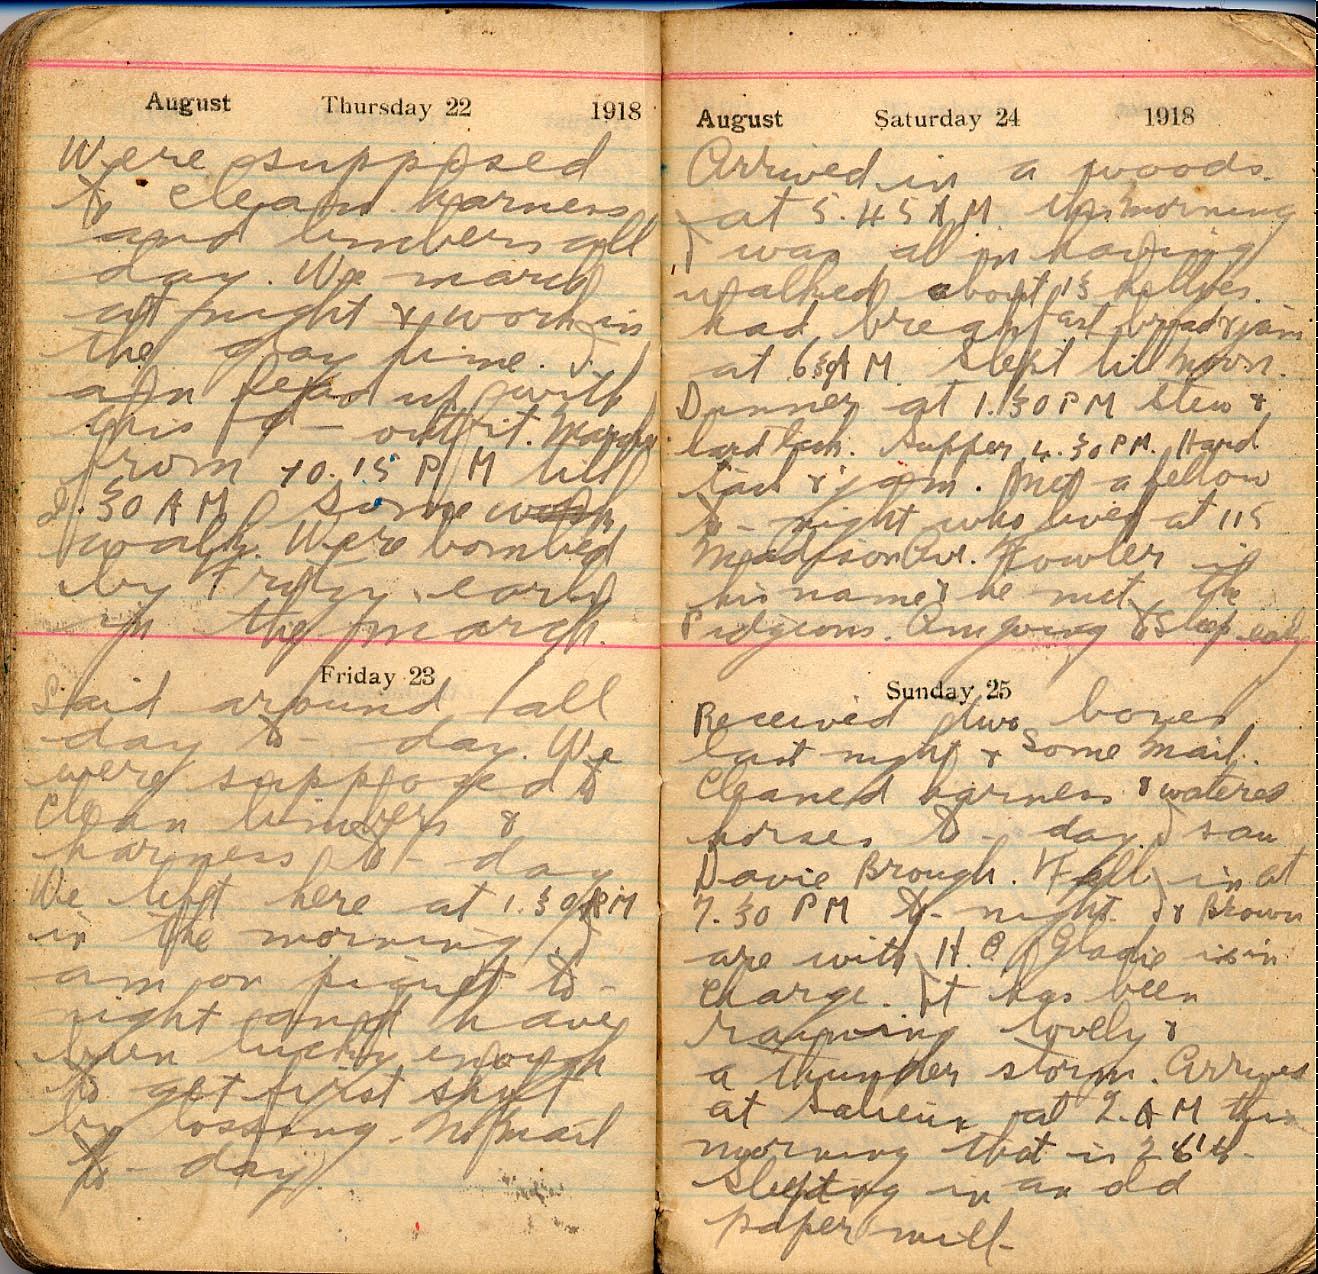 August Thursday 22 1918
Were supposed
to clean harness
and limbers all
day. We march
at night & work in
the day time. I
am fead up with
this fd - outfit. March
from 10.15 P M till
2.30 A M some
walk. Were bombed
by Fritzy early
in the march.
Friday 23
Laid around all
day to-day. We
were supposed to
clean limbers &
harness to-day
We left here at 1.30 PM
in the morning I
am on piquet to-
night and have
been lucky enough
to get first shift
by tossing. No mail
to-day.
August Saturday 24 1918
Arrived in a woods.
at 5.45 A M this morning
I was all in having
walked about 15 kellyes.
had breakfast bread & jam
at 6 A M. Slept till noon.
Dinner at 1.30 PM stew &
hard tack. Supper 4.30 PM. Hard
tack & jam. Met a fellow
to-night who lived at 115
Madison Ave. Fowler is
his name & he met the
Pidgeons. Am going to sleep early
Sunday 25
Received two boxes
last night & some mail.
Cleaned harness & watered
horses to-day I saw
Davie Brough. Fall in at
7.30 PM to-night. I & Brown
are with H. Q Gladie is in
charge. It has been
raining lovely &
a thunder storm. Arrived
at at 2. A M this
morning that is 26th.
Sleeping in an old
paper mill-